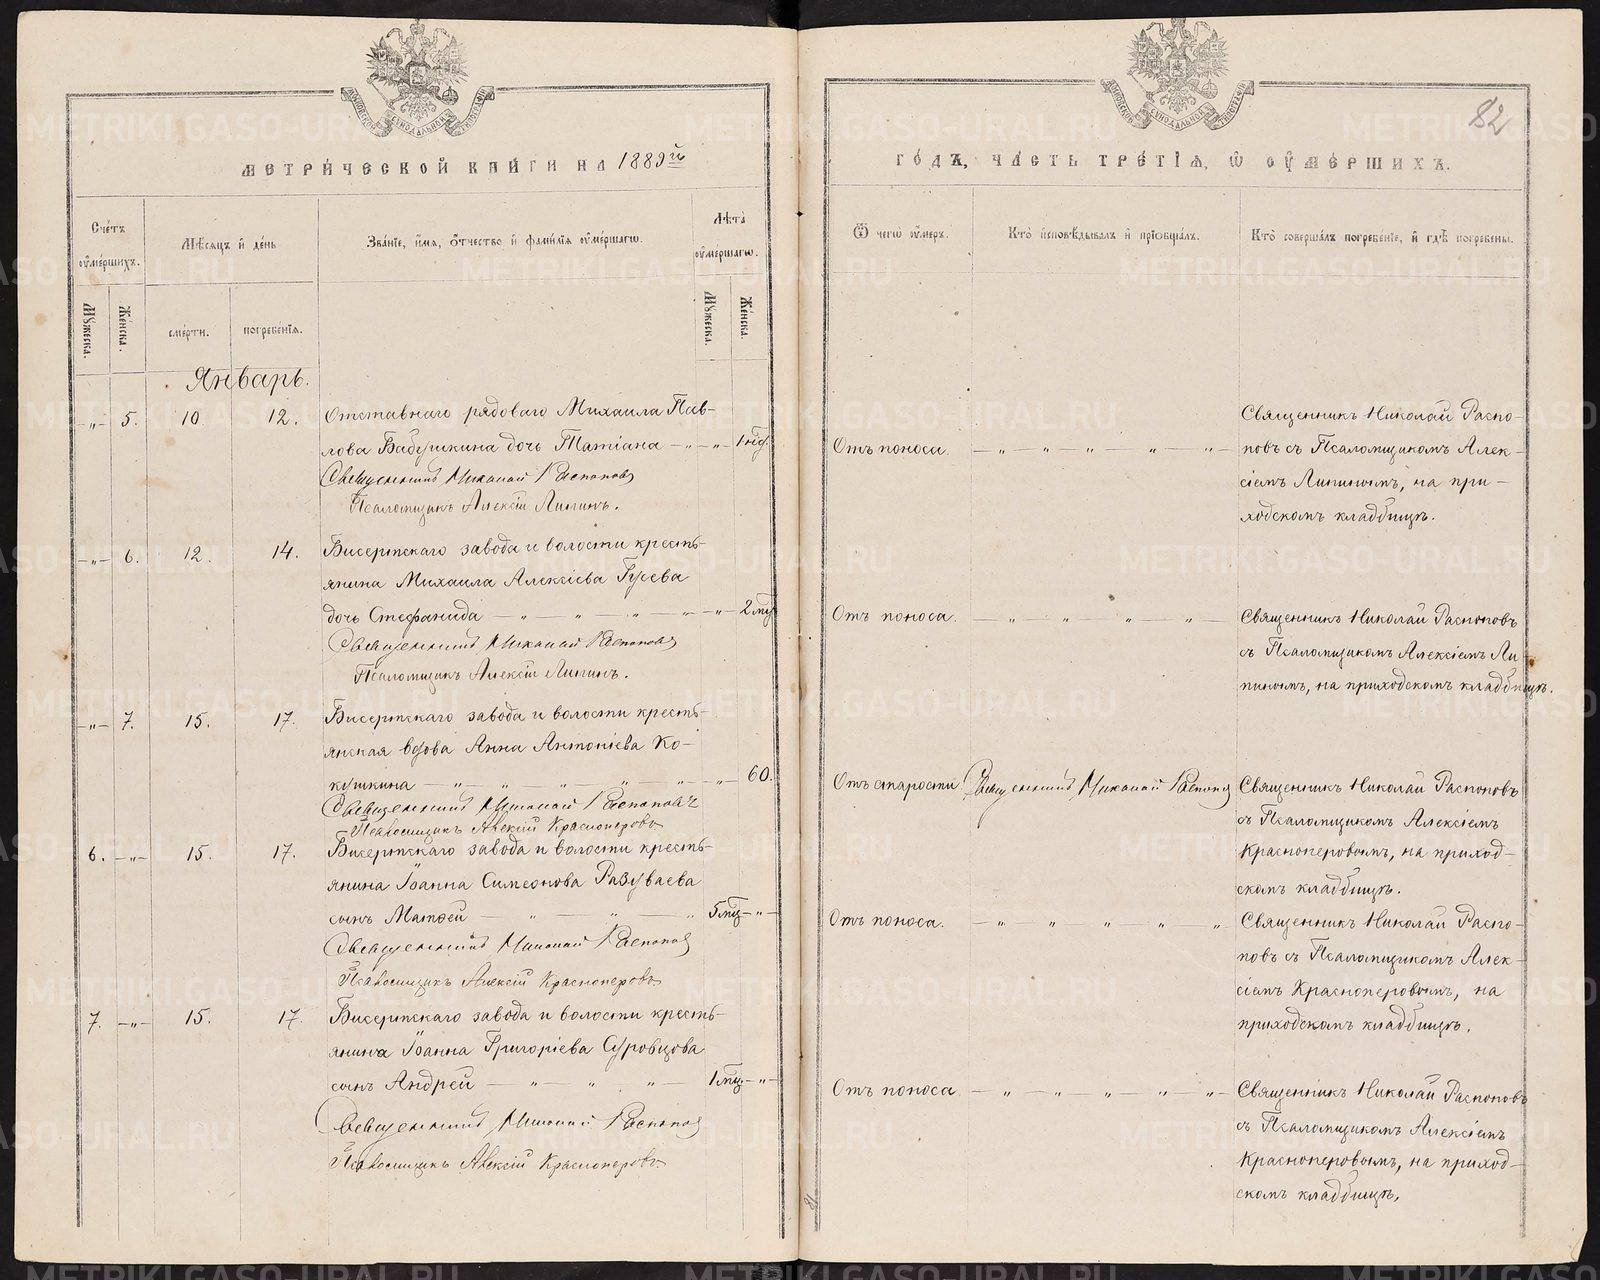 МОСКОВСКОЙ СѴНОДАЛЬНОЙ ТИПОГРАФІИ
МЕТРИ́ЧЕСКОЙ КНИ́ГИ НА 1889й
Сче́тъ оу҆ме́ршихъ.
Мѣ́сяцъ и҆ де́нь
Зва́нїе, и҆́мя, ѻ҆́тчество и҆ фами́лїя оу҆ме́ршагѡ.
Лѣ́та оу҆ме́ршагѡ.
Мꙋ́жеска.
Же́нска.
сме́рти.
погребе́нїя.
Мꙋ́жеска.
Же́нска.
Январь.
-„- 5. 10. 12. Отставнаго рядоваго Михаила Пав-
лова Бабушкина дочь Татіана -„-„- 1 нѣд.
Священникъ Николай Распоповъ
Псаломщикъ Алексій Липинъ.
-„- 6. 12. 14. Бисертскаго завода и волости кресть-
янина Михаила Алексіева Гусева
дочь Стефанида — „ — „ — „ — „ -„- 2 мѣс
Священникъ Николай Распоповъ
Псаломщикъ Алексій Липинъ.
-„- 7. 15. 17. Бисертскаго завода и волости кресть-
янская вдова Анна Антоніева Ко-
кушкина — „ — „ — „ — „ -„- 60.
Священникъ Николай Распоповъ
Псаломщикъ Алексій Красноперовъ
6. -„- 15. 17. Бисертскаго завода и волости кресть-
янина Іоанна Симеонова Разуваева
сынъ Матѳей — „ — „ — „ 5 мѣц -„-
Священникъ Николай Распоповъ
Псаломщикъ Алексій Красноперовъ
7. -„- 15. 17. Бисертскаго завода и волости кресть-
янина Іоанна Григоріева Суровцова
сынъ Андрей — „ — „ — „ — 1 мѣц -„-
Священникъ Николай Распоповъ
Псаломщикъ Алексій Красноперовъ
82
МОСКОВСКОЙ СѴНОДАЛЬНОЙ ТИПОГРАФІИ
ГО́ДЪ, ЧА́СТЬ ТРЕ́ТЇЯ, Ѡ҆ ОУ҆МЕ́РШИХЪ.
Ѿ чегѡ̀ оу҆́меръ.
Кто̀ и҆сповѣ́дывалъ и҆ прїѡбща́лъ.
Кто̀ соверша́лъ погребе́нїе, и҆ гдѣ̀ погребе́ны.
Священникъ Николай Распо-
Отъ поноса. — „ — „ — „ — „ — „ — повъ съ Псаломщикомъ Алек-
сіемъ Липинымъ, на при-
ходскомъ кладбищѣ.
Отъ поноса. — „ — „ — „ — „ — Священникъ Николай Распоповъ
съ Псаломщикомъ Алексіемъ Ли-
пинымъ, на приходскомъ кладбищѣ.
Отъ старости Священникъ Николай Распоповъ Священникъ Николай Распоповъ
съ Псаломщикомъ Алексіемъ
Красноперовымъ, на приход-
скомъ кладбищѣ.
Отъ поноса. — „ — „ — „ — „ — „ Священникъ Николай Распо-
повъ съ Псаломщикомъ Алек-
сіемъ Красноперовымъ, на
приходскомъ кладбищѣ.
Отъ поноса — „ — „ — „ — „ — „ — Священникъ Николай Распоповъ
съ Псаломщикомъ Алексіемъ
Красноперовымъ, на приход-
скомъ кладбищѣ,
METRIKI.GASO-URAL.RU